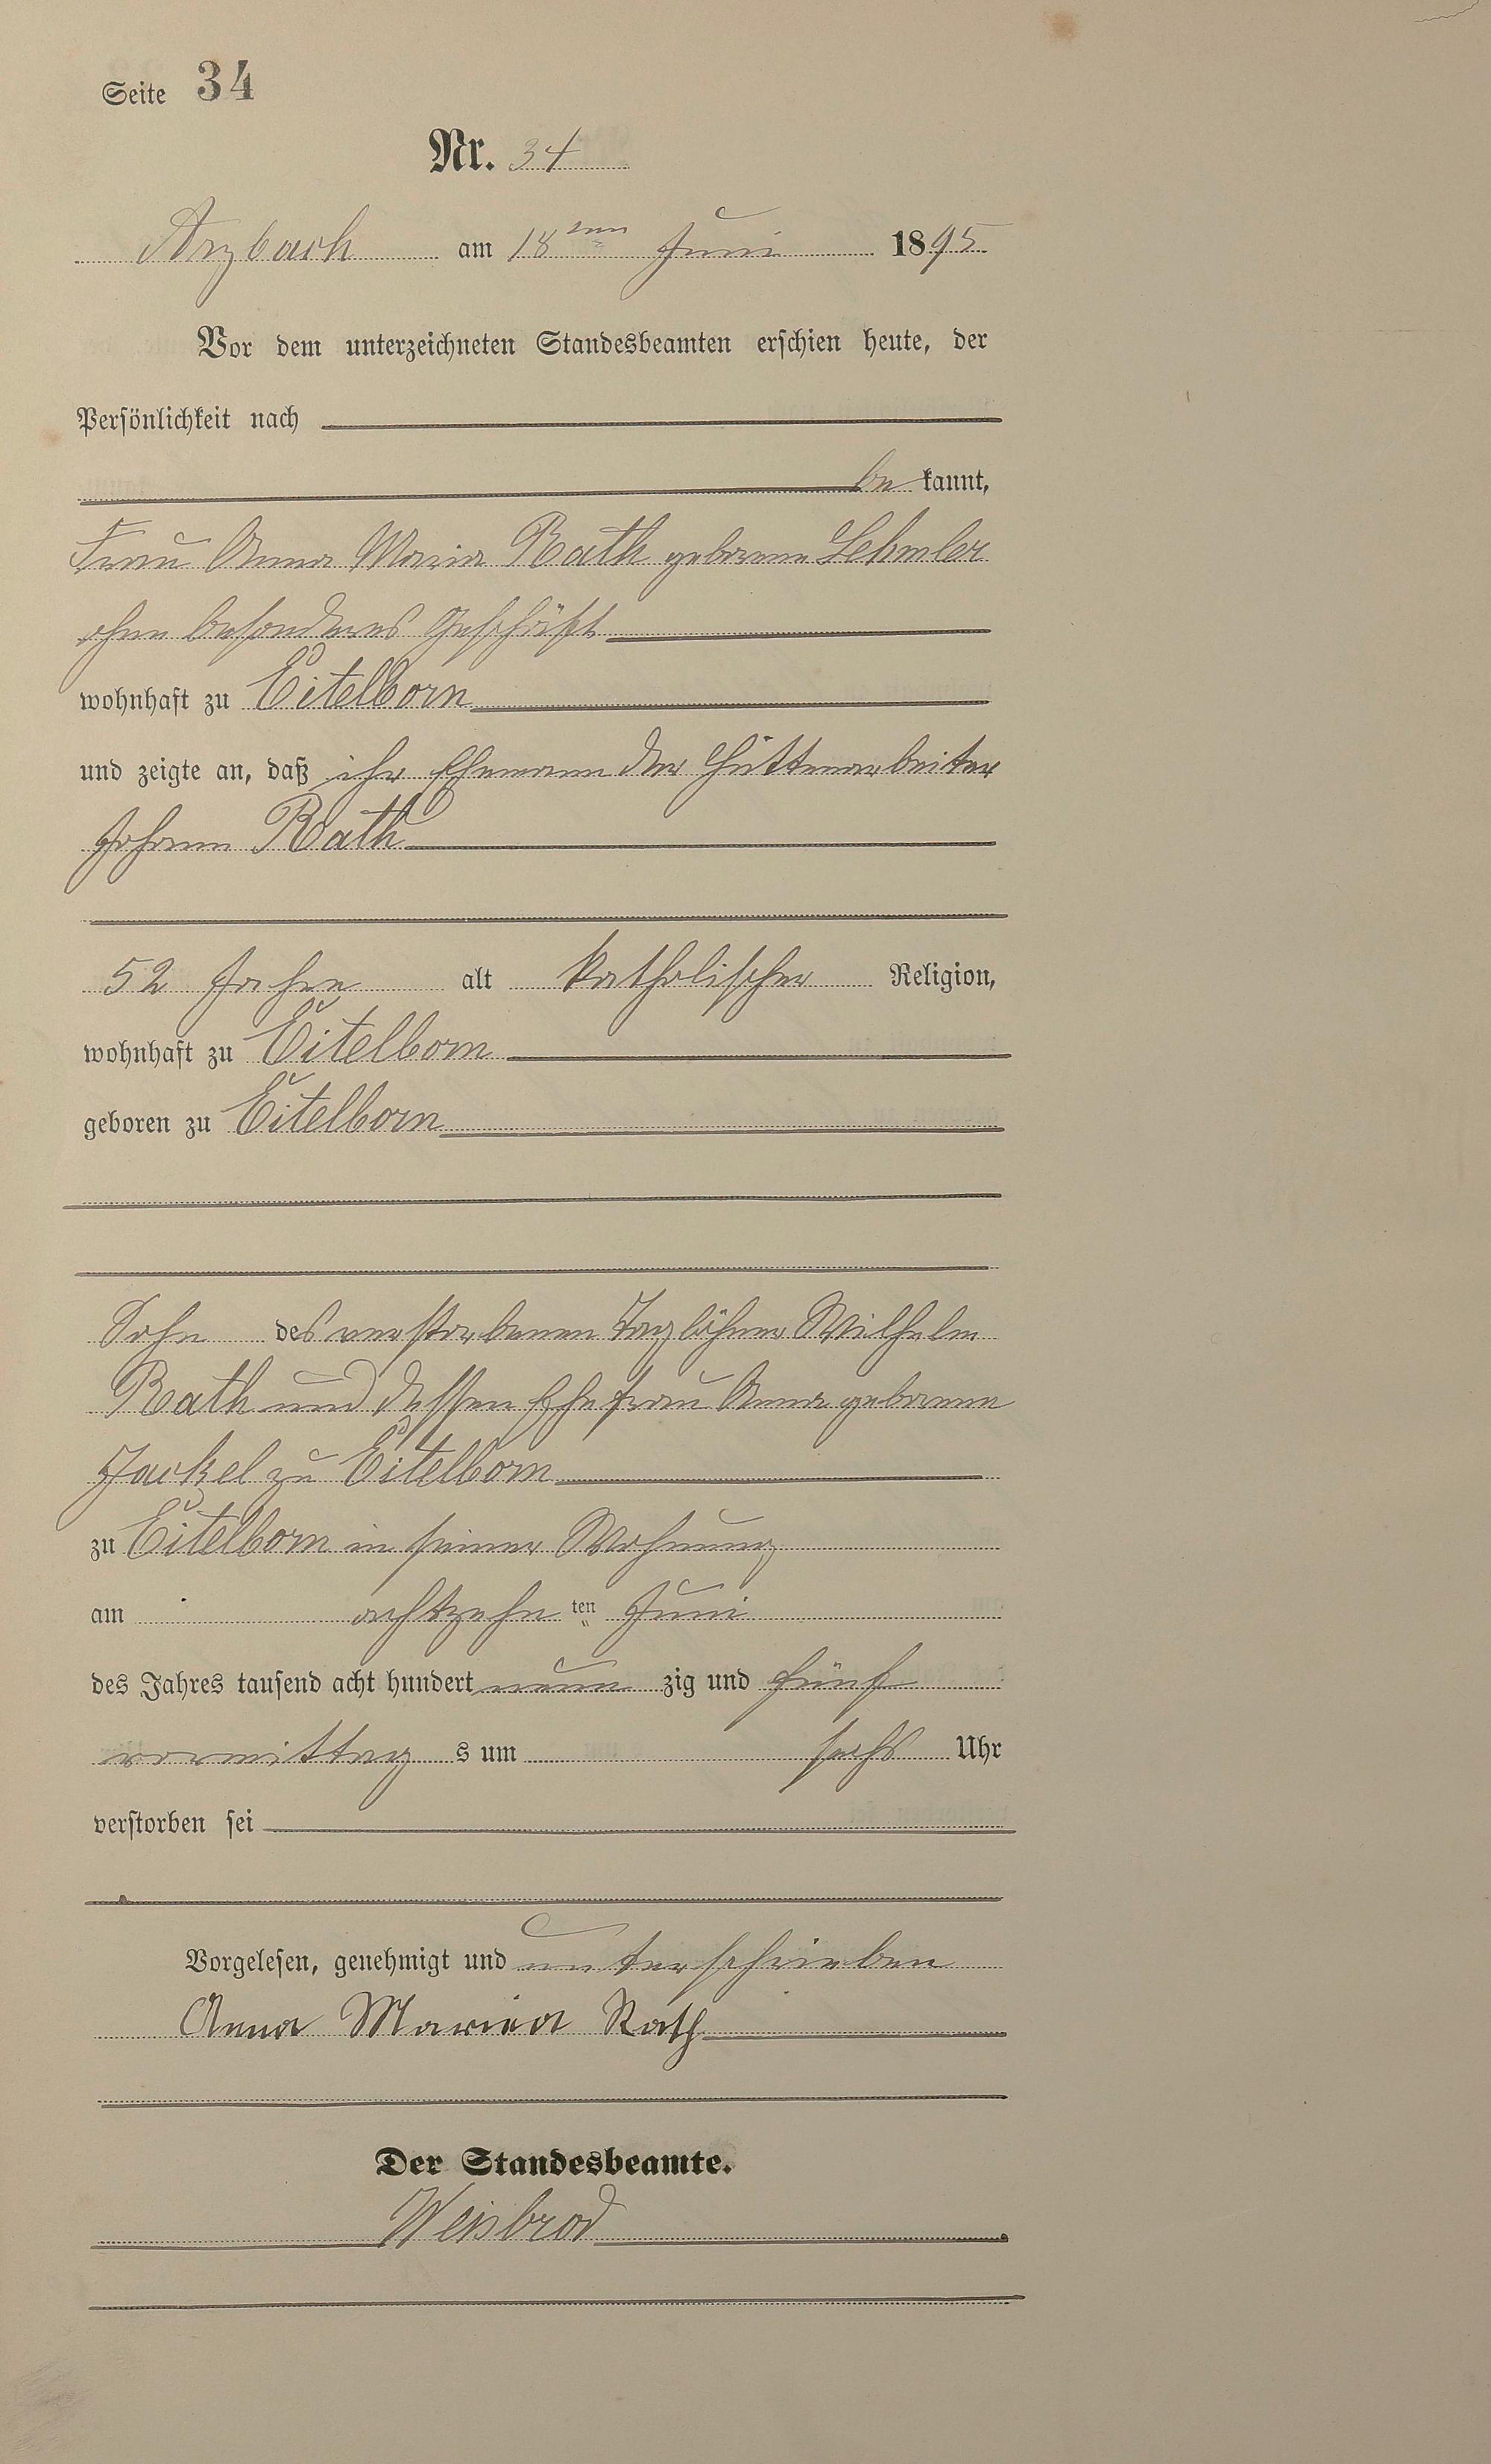 Seite 34
Nr. 34
Arzbach am 18ten Juni 1895
Vor dem unterzeichneten Standesbeamten erschien heute, der
Persönlichkeit nach
be kannt,
Frau Anna Maria Rath geborene Lehmler
ohne besonderes Geschäft
wohnhaft zu Eitelborn
und zeigte an, daß ihr Ehemann der Hüttenarbeiter
Johann Rath
52 Jahre alt katholischer Religion,
wohnhaft zu Eitelborn
geboren zu Eitelborn
Sohn des verstorbenen Taglöhner Wilhelm
Rath und dessen Ehefrau Anna geborene
Jackel zu Eitelborn
zu Eitelborn in seiner Wohnung
am achtzehn ten Juni
des Jahres tausend acht hundert neun zig und fünf
vormittag s um sechs Uhr
verstorben sei
Vorgelesen, genehmigt und unterschrieben
Anna Maria Rath
Der Standesbeamte.
Weisbrod